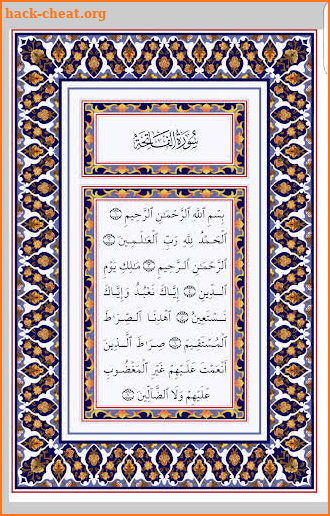 hack-cheat.org
سُورَةُ الفَاتِحَةِ
بِسْمِ ٱللَّهِ ٱلرَّحْمَٰنِ ٱلرَّحِيمِ ۝
ٱلْحَمْدُ لِلَّهِ رَبِّ ٱلْعَٰلَمِينَ ۝
ٱلرَّحْمَٰنِ ٱلرَّحِيمِ ۝ مَٰلِكِ يَوْمِ
ٱلدِّينِ ۝ إِيَّاكَ نَعْبُدُ وَإِيَّاكَ
نَسْتَعِينُ ۝ ٱهْدِنَا ٱلصِّرَٰطَ
ٱلْمُسْتَقِيمَ ۝ صِرَٰطَ ٱلَّذِينَ
أَنْعَمْتَ عَلَيْهِمْ غَيْرِ ٱلْمَغْضُوبِ
عَلَيْهِمْ وَلَا ٱلضَّآلِّينَ ۝